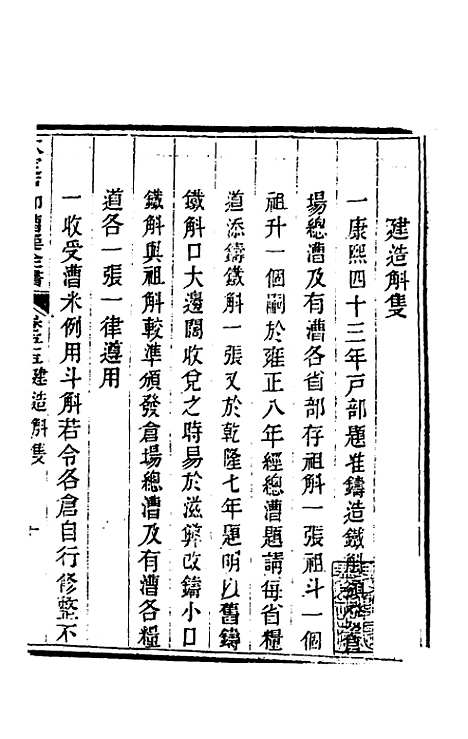 建造斛隻
一康熙四十三年戸部題准鑄造鐵斛頒發倉
場總漕及有漕各省部存祖斛一張祖斗一個
祖升一個嗣於雍正八年經總漕題請每省糧
道添鑄鐵斛一張又於乾隆七年題明以舊鑄
鐵斛口大邊闊收兌之時易於滋弊改鑄小口
鐵斛與祖斛較準頒發倉場總漕及有漕各糧
道各一張一律遵用
一收受漕米例用斗斛若令各倉自行修整不
漕運全書
建造斛隻